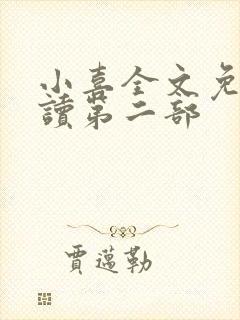 小喜全文免
讀第二部
賈邁勒